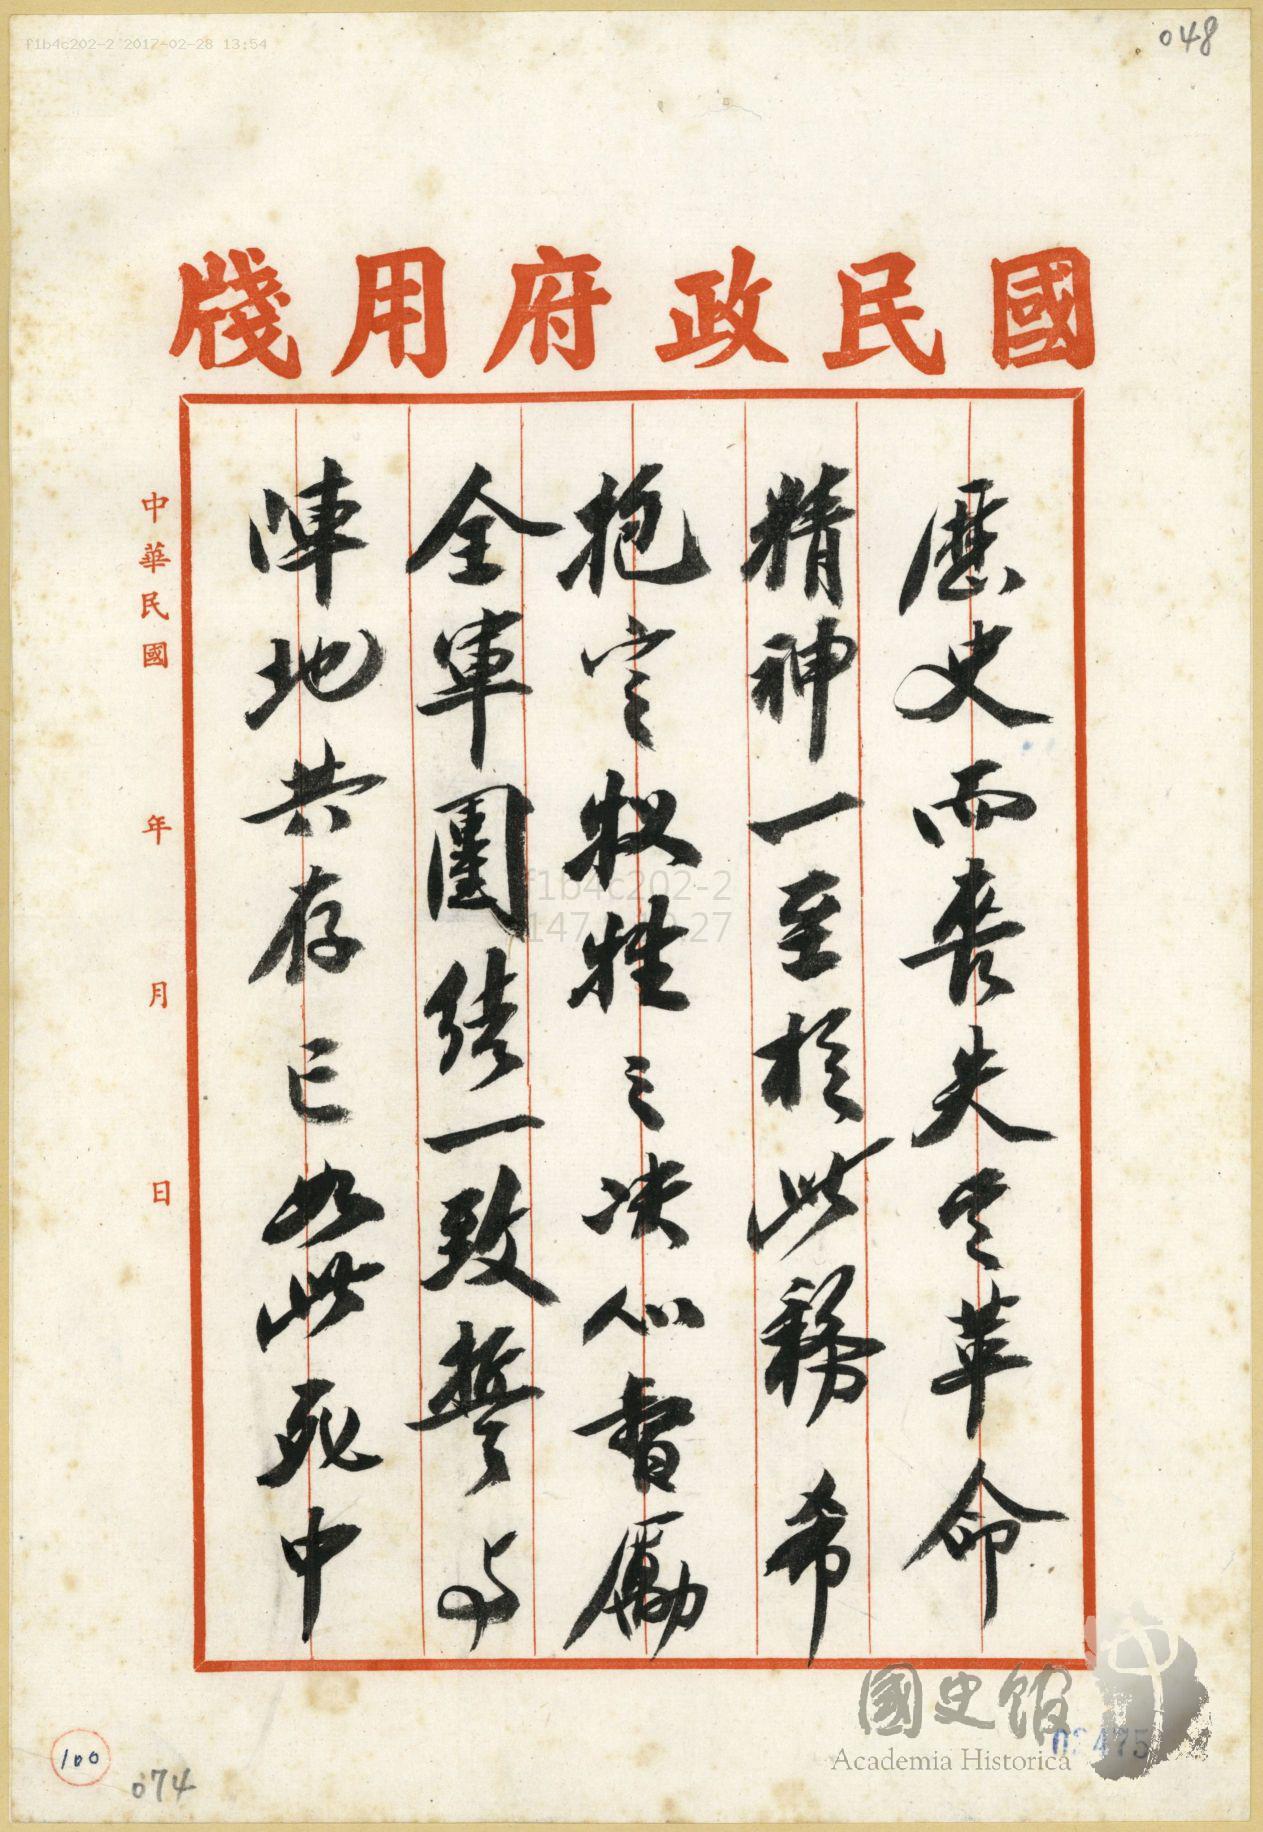 f1b4c202-2 2017-02-28 13:54
048
國民政府用牋
歷史而喪失革命
精神一至於此務希
抱定犧牲之决心督勵
全軍團結一致誓与
陣地共存亡如此死中
中華民國 年 月 日
f1b4c202-2
國史館
Academia Historica
100
074